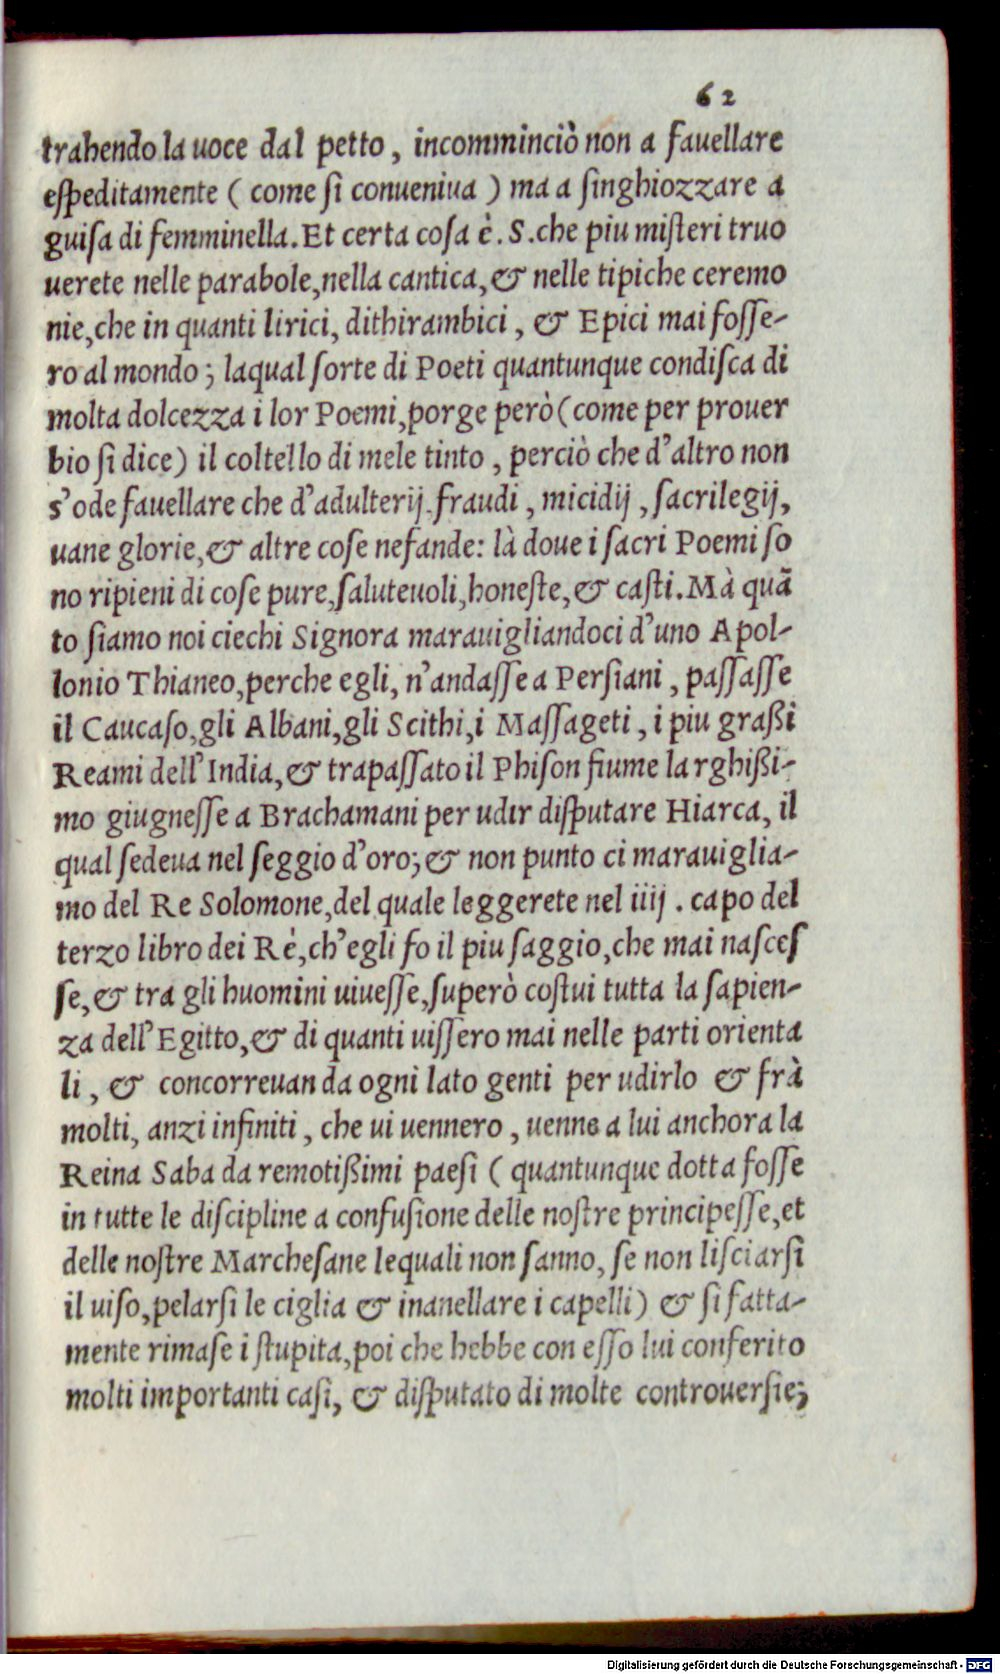 62
trahendo la uoce dal petto, incomminciò non a fauellare
eſpeditamente ( come ſi conueniua ) ma a ſinghiozzare a
guiſa di femminella. Et certa coſa è. S. che piu miſteri truo
uerete nelle parabole, nella cantica, & nelle tipiche ceremo
nie, che in quanti lirici, dithirambici, & Epici mai foſſe-
ro al mondo; laqual ſorte di Poeti quantunque condiſca di
molta dolcezza i lor Poemi, porge però (come per prouer
bio ſi dice) il coltello di mele tinto, perciò che d'altro non
s'ode fauellare che d'adulterij. fraudi, micidij, ſacrilegij,
uane glorie, & altre coſe nefande: là doue i ſacri Poemi ſo
no ripieni di coſe pure, ſaluteuoli, honeſte, & caſti. Mà quã
to ſiamo noi ciechi Signora marauigliandoci d'uno Apol-
lonio Thianeo, perche egli, n'andaſſe a Perſiani, paſſaſſe
il Caucaſo, gli Albani, gli Scithi, i Maſſageti, i piu graßi
Reami dell'India, & trapaſſato il Phiſon fiume larghißi-
mo giugneſſe a Brachamani per udir diſputare Hiarca, il
qual ſedeua nel ſeggio d'oro; & non punto ci marauiglia-
mo del Re Solomone, del quale leggerete nel iiij. capo del
terzo libro dei Rè, ch'egli fo il piu ſaggio, che mai naſceſ
ſe, & tra gli huomini uiueſſe, ſuperò coſtui tutta la ſapien-
za dell'Egitto, & di quanti uiſſero mai nelle parti orienta
li, & concorreuan da ogni lato genti per udirlo & frà
molti, anzi infiniti, che ui uennero, uenne a lui anchora la
Reina Saba da remotißimi paeſi ( quantunque dotta foſſe
in tutte le diſcipline a confuſione delle noſtre principeſſe, et
delle noſtre Marcheſane lequali non ſanno, ſe non liſciarſi
il uiſo, pelarſi le ciglia & inanellare i capelli) & ſi fatta-
mente rimaſe i ſtupita, poi che hebbe con eſſo lui conferito
molti importanti caſi, & diſputato di molte controuerſie;
Digitalisierung gefördert durch die Deutsche Forschungsgemeinschaft - DFG